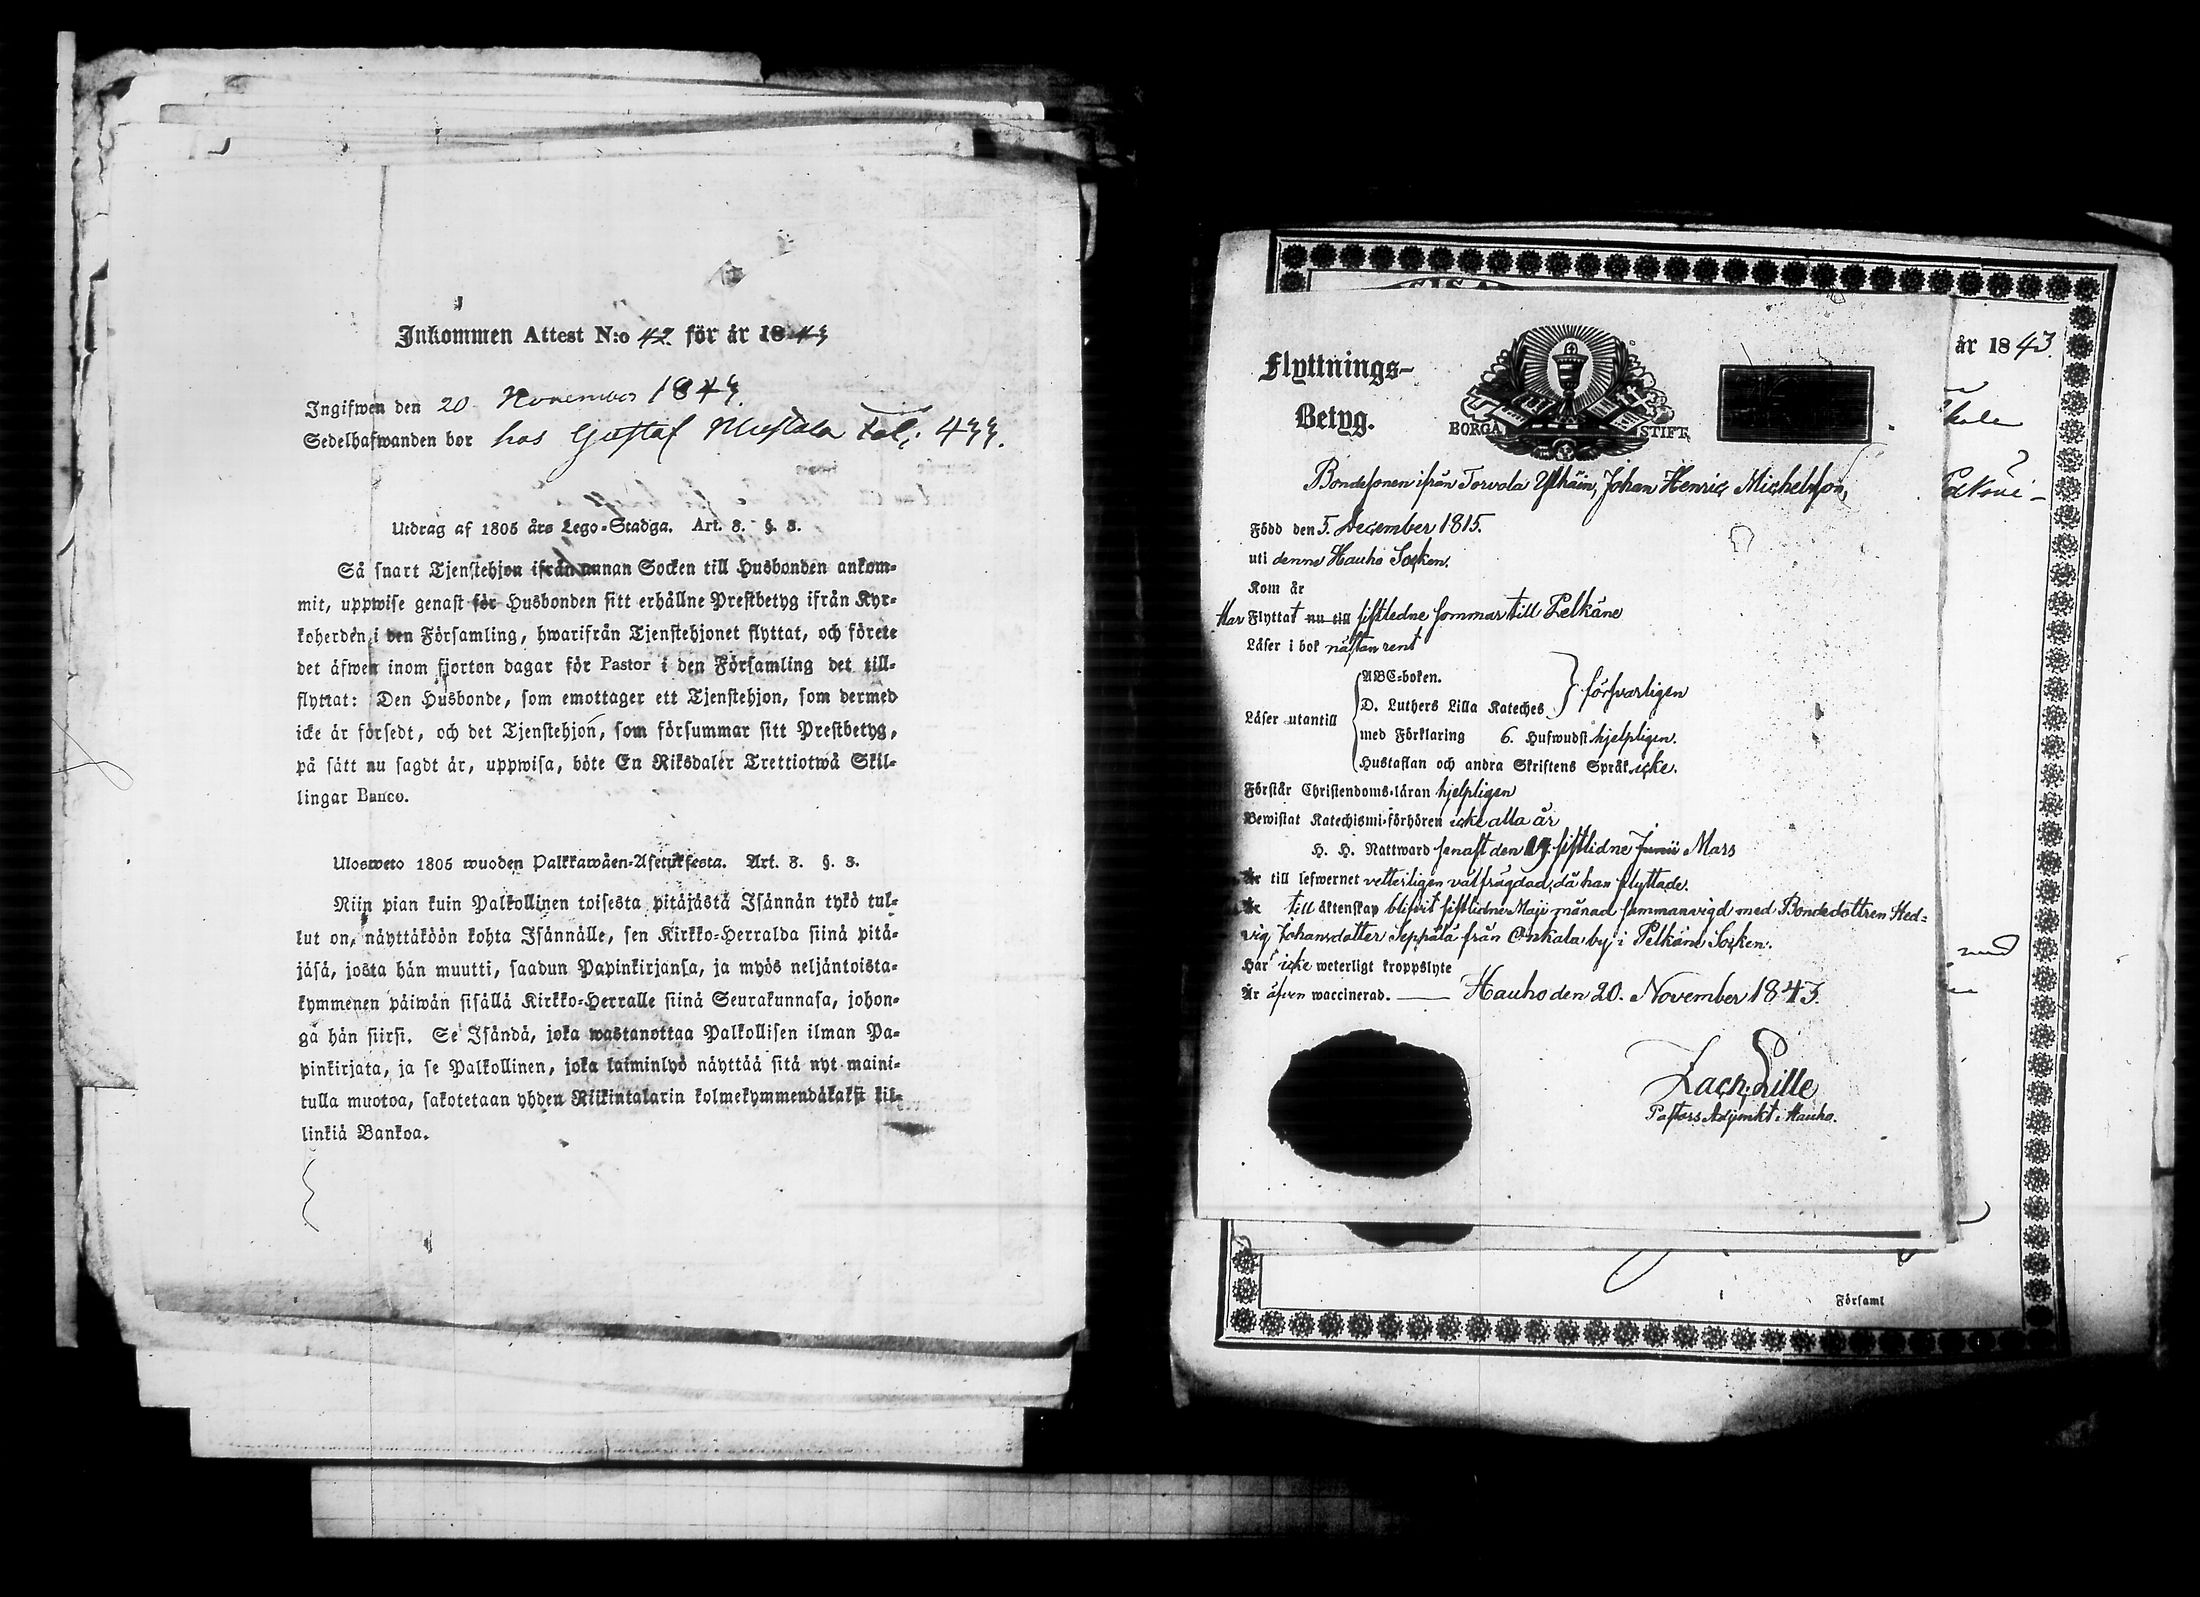 Inkommen Attest N:o 42 för år 1843
Ingifwen den 20 November 1843.
Sedelhafwanden bor hos Gustaf Mustala Fol: 433.
Utdrag af 1805 års Lego-Stadga. Art. 3. §. 3.
Så snart Tjenstehjon ifrån annan Socken till Husbonden ankom-
mit, uppwise genast för Husbonden sitt erhållne Prestbetyg ifrån Kyr-
koherden i den Församling, hwarifrån Tjenstehjonet flyttat, och förete
det äfwen inom fjorton dagar för Pastor i den Församling det till-
flyttat: Den Husbonde, som emottager ett Tjenstehjon, som dermed
icke är försedt, och det Tjenstehjon, som försummar sitt Prestbetyg,
på sätt nu sagdt är, uppwisa, böte En Riksdaler Trettiotwå Skil-
lingar Banco.
Ulosweto 1805 wuoden Palkkawäen-Asetuksesta. Art. 3. §. 3.
Niin pian kuin Palkollinen toisesta pitäjästä Isännän tykö tul-
lut on, näyttäköön kohta Isännälle, sen Kirkko-Herralda siinä pitä-
jäsä, josta hän muutti, saadun Papinkirjansa, ja myös neljäntoista-
kymmenen päiwän sisällä Kirkko-Herralle siinä Seurakunnasa, johon-
ga hän siirsi. Se Isändä, joka wastanottaa Palkollisen ilman Pa-
pinkirjata, ja se Palkollinen, joka laiminlyö näyttää sitä nyt maini-
tulla muotoa, sakotetaan yhden Riikintalarin kolmekymmendäkaksi kil-
linkiä Bankoa.
Flyttnings-
Betyg.
BORGÅ STIFT
år 1843.
Bondesonen ifrån Torvola Ylhäin, Johan Henric Michelsson,
Född den 5. December 1815.
uti denne Hauho Socken.
Kom år
Har Flyttat nu till sistledne sommar till Pelkäne
Läser i bok nästan rent
Läser utantill
ABC-boken.
D. Luthers Lilla Kateches försvarligen
med Förklaring 6. Hufwudst hjelpligen.
Hustaflan och andra Skriftens Språk icke.
Förstår Christendoms-läran hjelpligen
Bewistat Katechismi-förhören icke alla år
H. H. Nattward senast den 19. sistlidne Junii Mars
Är till lefwernet vetterligen välfrägdad, då han flyttade.
Är till äktenskap blifvit sistlidne Maji månad sammanvigd med Bondedottren Hed=
vig Johansdotter Seppälä från Onkala by i Pelkäne Socken.
Har icke weterligt kroppslyte
Är äfven waccinerad. Hauho den 20. November 1843.
Zach: Lille
Pastors Adjunkt i Hauho.
Församl